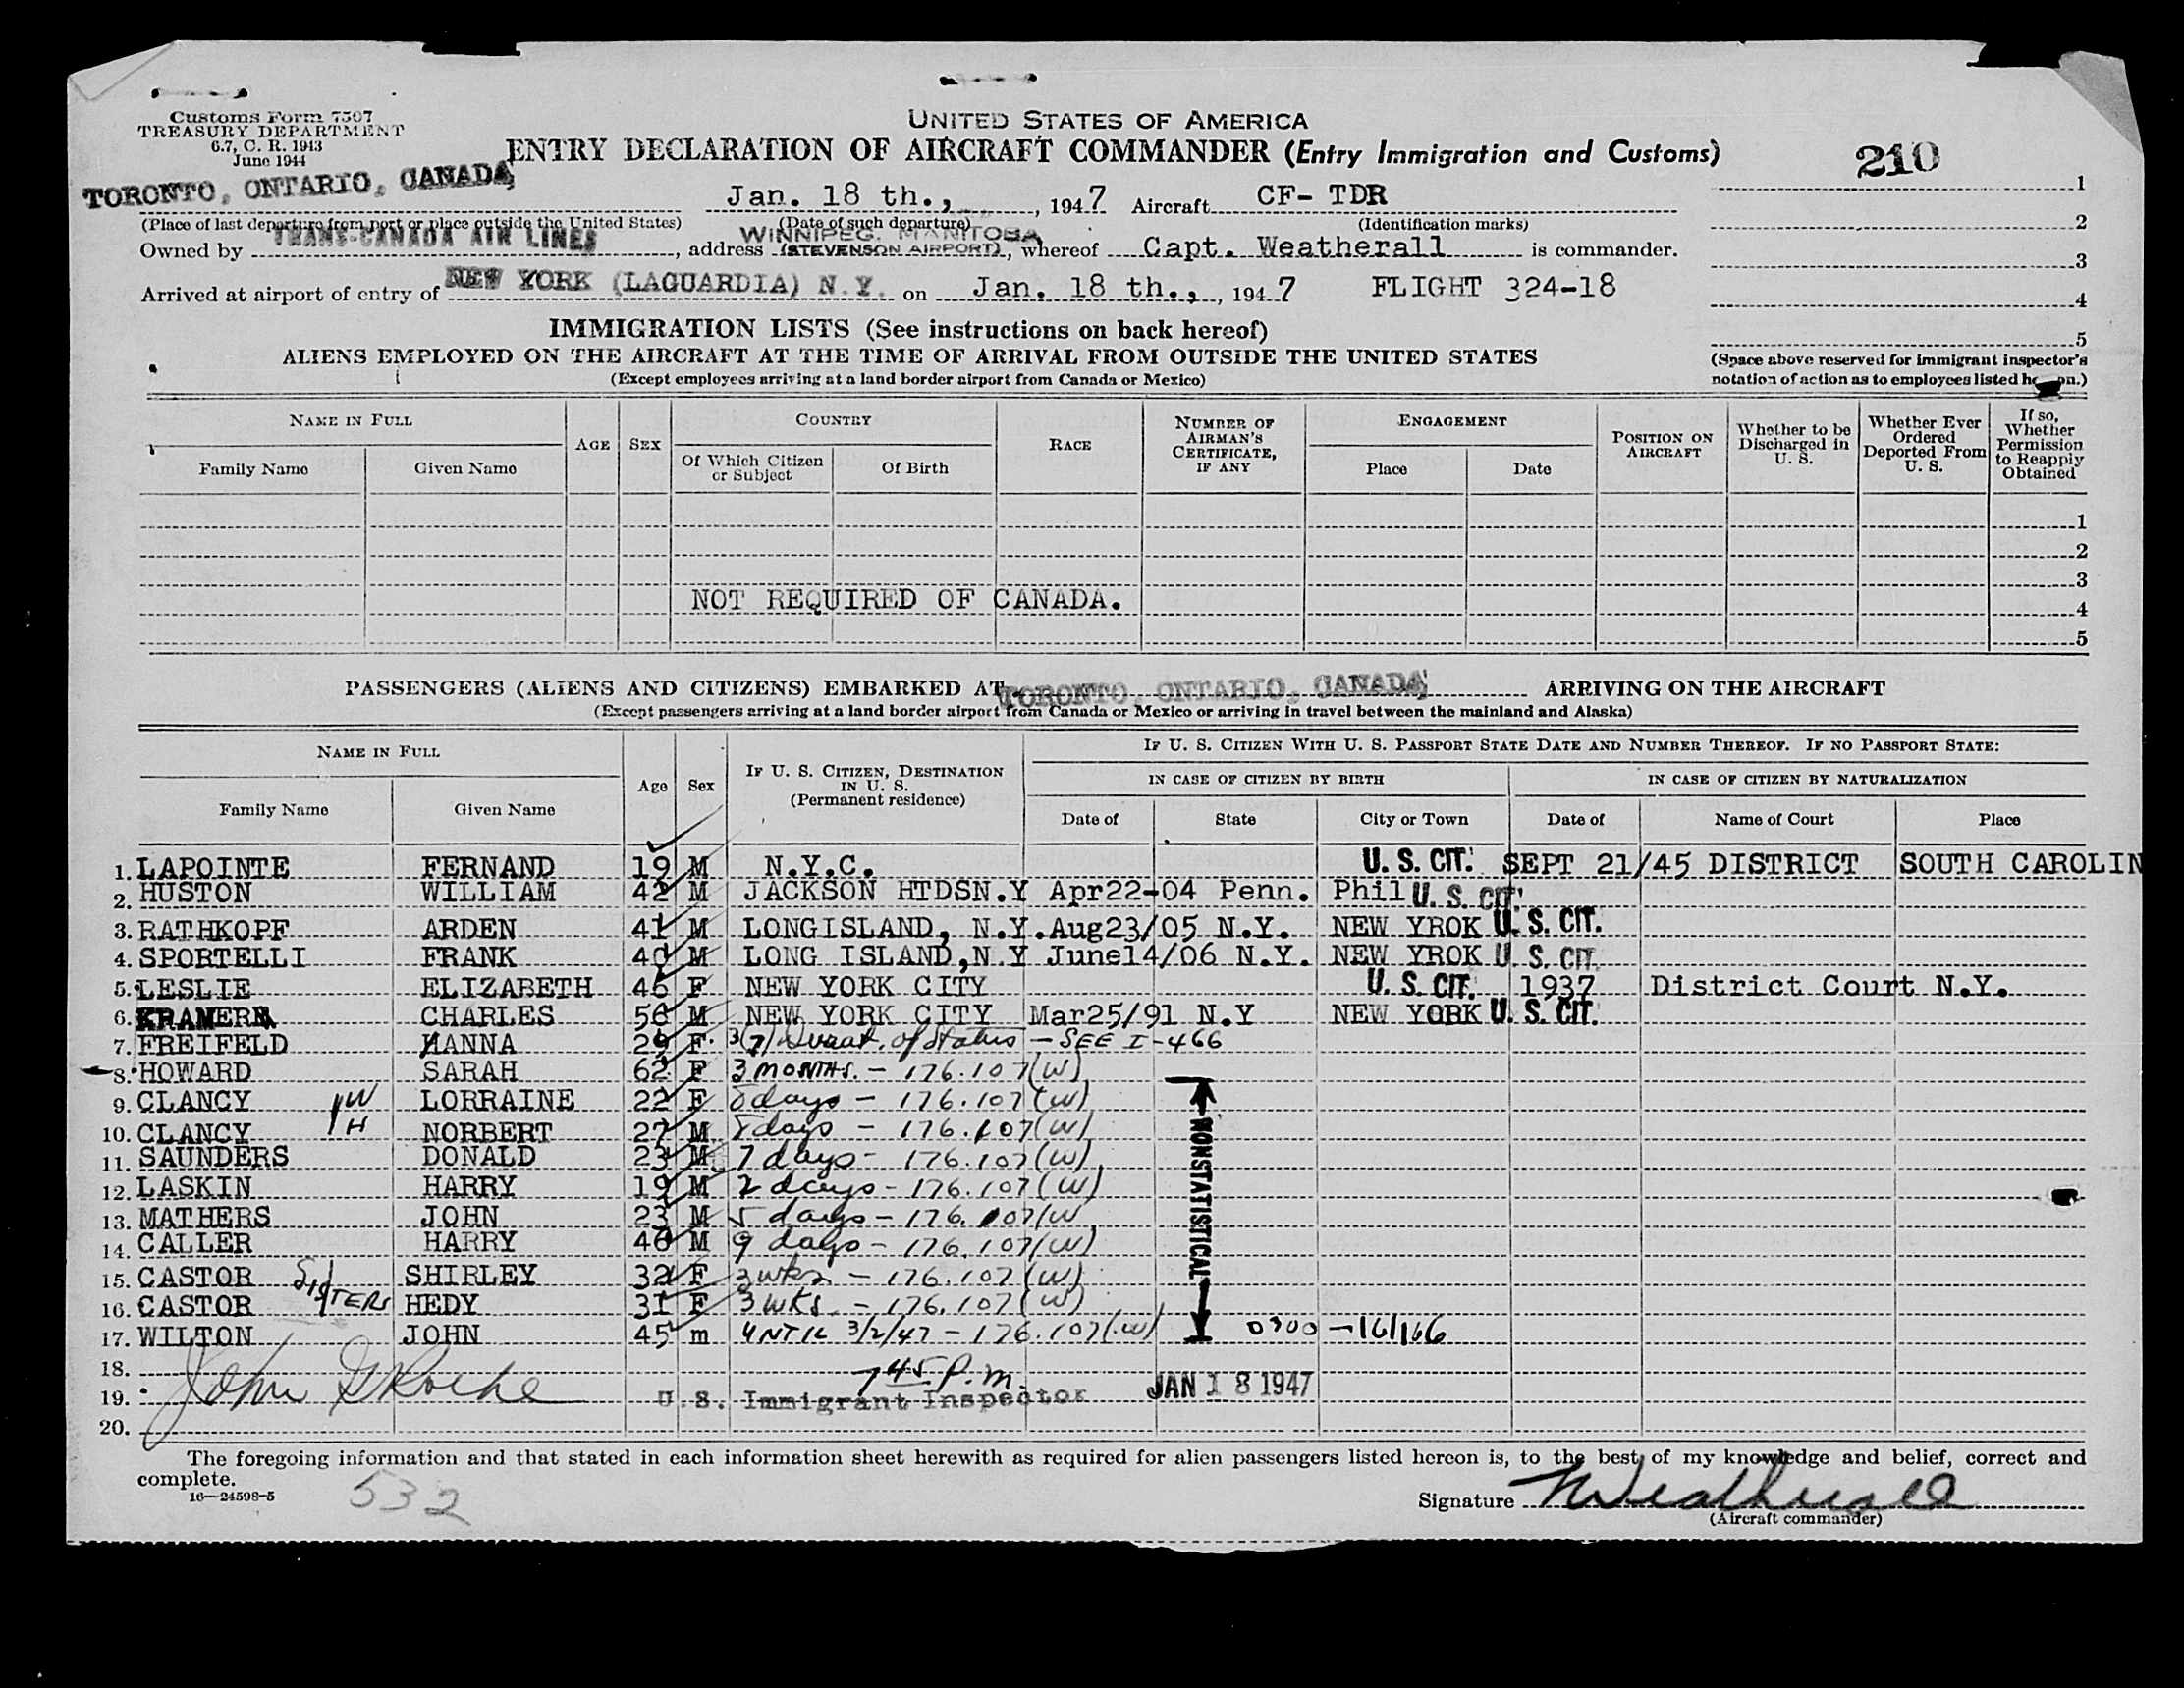 Customs Form 7507
TREASURY DEPARTMENT
6.7, C. R. 1943
June 1944
UNITED STATES OF AMERICA
ENTRY DECLARATION OF AIRCRAFT COMMANDER (Entry Immigration and Customs)
210
TORONTO, ONTARIO, CANADA
Jan. 18 th., , 1947 Aircraft CF- TDR
1
(Place of last departure from port or place outside the United States) (Date of such departure) (Identification marks)
2
Owned by TRANS-CANADA AIR LINES, address WINNIPEG, MANITOBA (STEVENSON AIRPORT), whereof Capt. Weatherall is commander.
3
Arrived at airport of entry of NEW YORK (LAGUARDIA) N.Y. on Jan. 18 th., , 1947 FLIGHT 324-18
4
IMMIGRATION LISTS (See instructions on back hereof)
5
ALIENS EMPLOYED ON THE AIRCRAFT AT THE TIME OF ARRIVAL FROM OUTSIDE THE UNITED STATES
(Space above reserved for immigrant inspector's
(Except employees arriving at a land border airport from Canada or Mexico)
notation of action as to employees listed hereon.)
NAME IN FULL
Family Name Given Name
AGE SEX
COUNTRY
Of Which Citizen or Subject Of Birth
RACE
NUMBER OF AIRMAN'S CERTIFICATE, IF ANY
ENGAGEMENT
Place Date
POSITION ON AIRCRAFT
Whether to be Discharged in U. S.
Whether Ever Ordered Deported From U. S.
If so, Whether Permission to Reapply Obtained
1
2
3
NOT REQUIRED OF CANADA. 4
5
PASSENGERS (ALIENS AND CITIZENS) EMBARKED AT TORONTO, ONTARIO, CANADA ARRIVING ON THE AIRCRAFT
(Except passengers arriving at a land border airport from Canada or Mexico or arriving in travel between the mainland and Alaska)
NAME IN FULL
Family Name Given Name
Age Sex
IF U. S. CITIZEN, DESTINATION IN U. S. (Permanent residence)
IF U. S. CITIZEN WITH U. S. PASSPORT STATE DATE AND NUMBER THEREOF. IF NO PASSPORT STATE:
IN CASE OF CITIZEN BY BIRTH IN CASE OF CITIZEN BY NATURALIZATION
Date of State City or Town Date of Name of Court Place
1. LAPOINTE FERNAND 19 M N.Y.C. U. S. CIT. SEPT 21/45 DISTRICT SOUTH CAROLIN
2. HUSTON WILLIAM 42 M JACKSON HTDSN.Y Apr22-04 Penn. Phil U. S. CIT.
3. RATHKOPF ARDEN 41 M LONGISLAND, N.Y. Aug23/05 N.Y. NEW YROK U. S. CIT.
4. SPORTELLI FRANK 40 M LONG ISLAND,N.Y June14/06 N.Y. NEW YROK U. S. CIT.
5. LESLIE ELIZABETH 46 F NEW YORK CITY U. S. CIT. 1937 District Court N.Y.
6. KRAMER CHARLES 56 M NEW YORK CITY Mar25/91 N.Y NEW YORK U. S. CIT.
7. FREIFELD HANNA 29 F 3(7) of Status - SEE I-466
8. HOWARD SARAH 62 F 3 MONTHS. - 176.107(W)
9. CLANCY W LORRAINE 22 F 8 days - 176.107(W)
10. CLANCY H NORBERT 27 M 8 days - 176.107(W)
11. SAUNDERS DONALD 23 M 7 days - 176.107(W)
12. LASKIN HARRY 19 M 2 days - 176.107(W)
13. MATHERS JOHN 23 M 5 days - 176.107(W
14. CALLER HARRY 46 M 9 days - 176.107(W)
15. CASTOR SISTERS SHIRLEY 32 F 3 wks - 176.107(W)
16. CASTOR HEDY 31 F 3 WKS. - 176.107(W)
17. WILTON JOHN 45 m UNTIL 3/2/47 - 176.107(W) 0300 - 16/166
NONSTATISTICAL
18. 7 45 P.m.
19. John U. S. Immigrant Inspector JAN 18 1947
20.
The foregoing information and that stated in each information sheet herewith as required for alien passengers listed hereon is, to the best of my knowledge and belief, correct and
complete.
16—24598-5
532
Signature Weatherall
(Aircraft commander)